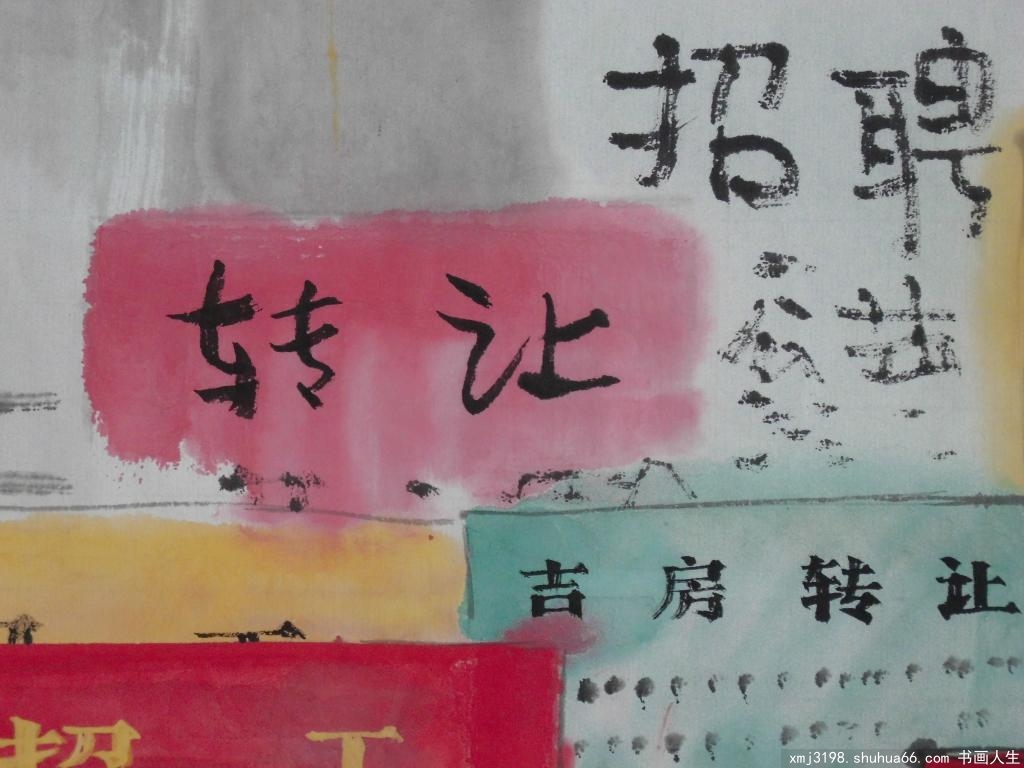 招聘
转让
吉房转让
招工
xmj3198.shuhua66.com 书画人生